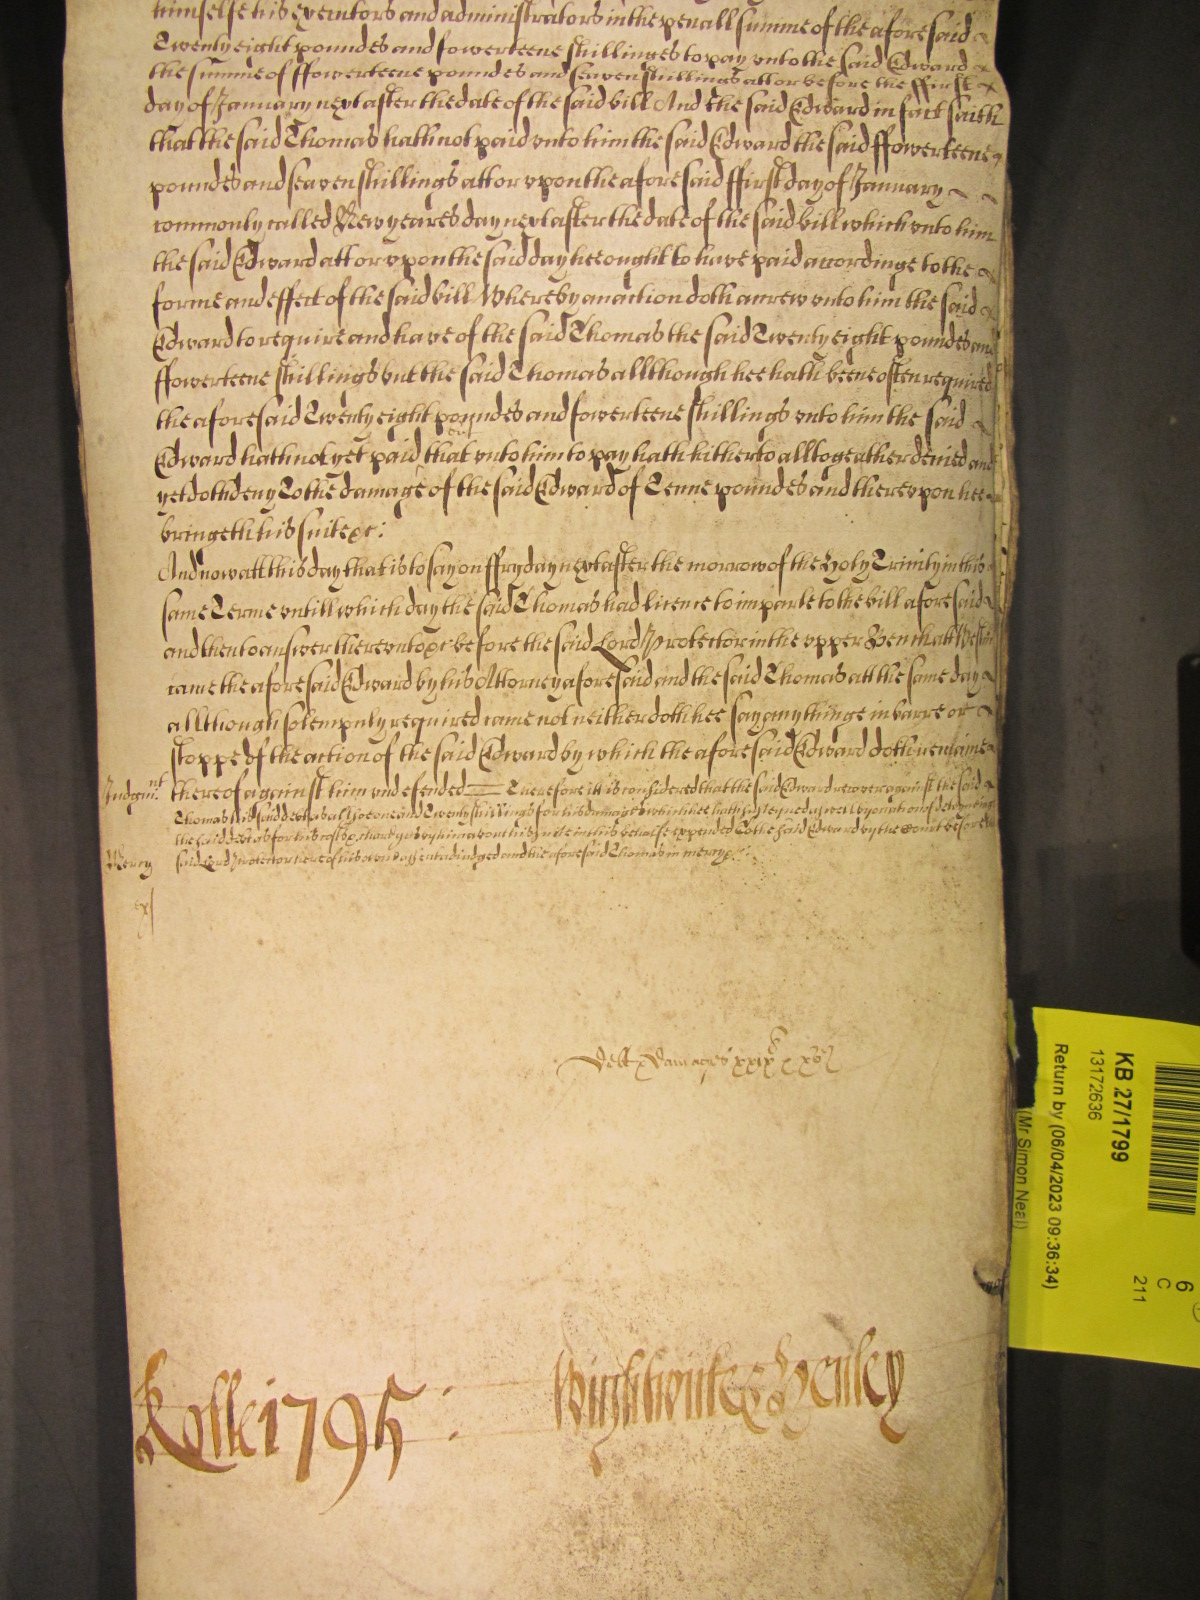 himselfe his executors and administrators in the penall summe of the aforesaid
Twenty eight poundes and fowerteene shillinges to pay unto the said Edward
the summe of ffowerteene poundes and seaven shillings att or before the ffirst
day of January next after the date of the said bill And the said Edward in fact saith
that the said Thomas hath not paid unto him the said Edward the said ffowerteene
poundes and seaven shillings att or upon the aforesaid ffirst day of January
commonly called New yeares day next after the date of the said bill which unto him
the said Edward att or upon the said day hee ought to have paid accordinge to the
forme and effect of the said bill Whereby an action doth accrew unto him the said
Edward to require and have of the said Thomas the said Twenty eight poundes and
ffowerteene shillings but the said Thomas allthough hee hath beene often required
the aforesaid Twenty eight poundes and fowerteene shillings unto him the said
Edward hath not yet paid that unto him to pay hath hitherto alltogeather denied and
yet doth deny To the damage of the said Edward of Tenne poundes and thereupon hee
bringeth his suite &c:
And now att this day that is to say on ffryday next after the morrow of the Holy Trinity in this
same Terme untill which day the said Thomas had licence to imparle to the bill aforesaid
and then to answer thereunto &c before the said Lord Protector in the upper Bench att Westm
came the aforesaid Edward by his Attorney aforesaid and the said Thomas att the same day
allthough solempnly required came not neither doth hee say any thinge in barre or
stoppe of the action of the said Edward by which the aforesaid Edward doth remaine
Judgmt
thereof against him undefended Therefore itt is considered that the said Edward recover against the said
Thomas his said debt as allsoe one and Twenty shillings for his damages which hee hath susteyned aswell by occation of deteyning
the said debt as for his costs & charges by him about his suite in this behalfe expended To the said Edward by the Court before the
Mercy
said Lord Protector here of his owne assent adjudged and the aforesaid Thomas in mercy &c:
ex
Debt & Damages xxixli xvs
Rolle 1795:
Wightwicke & Henley
KB 27/1799
13172636
Return by (06/04/2023 09:36:34)
(Mr Simon Neal)
6
C
211